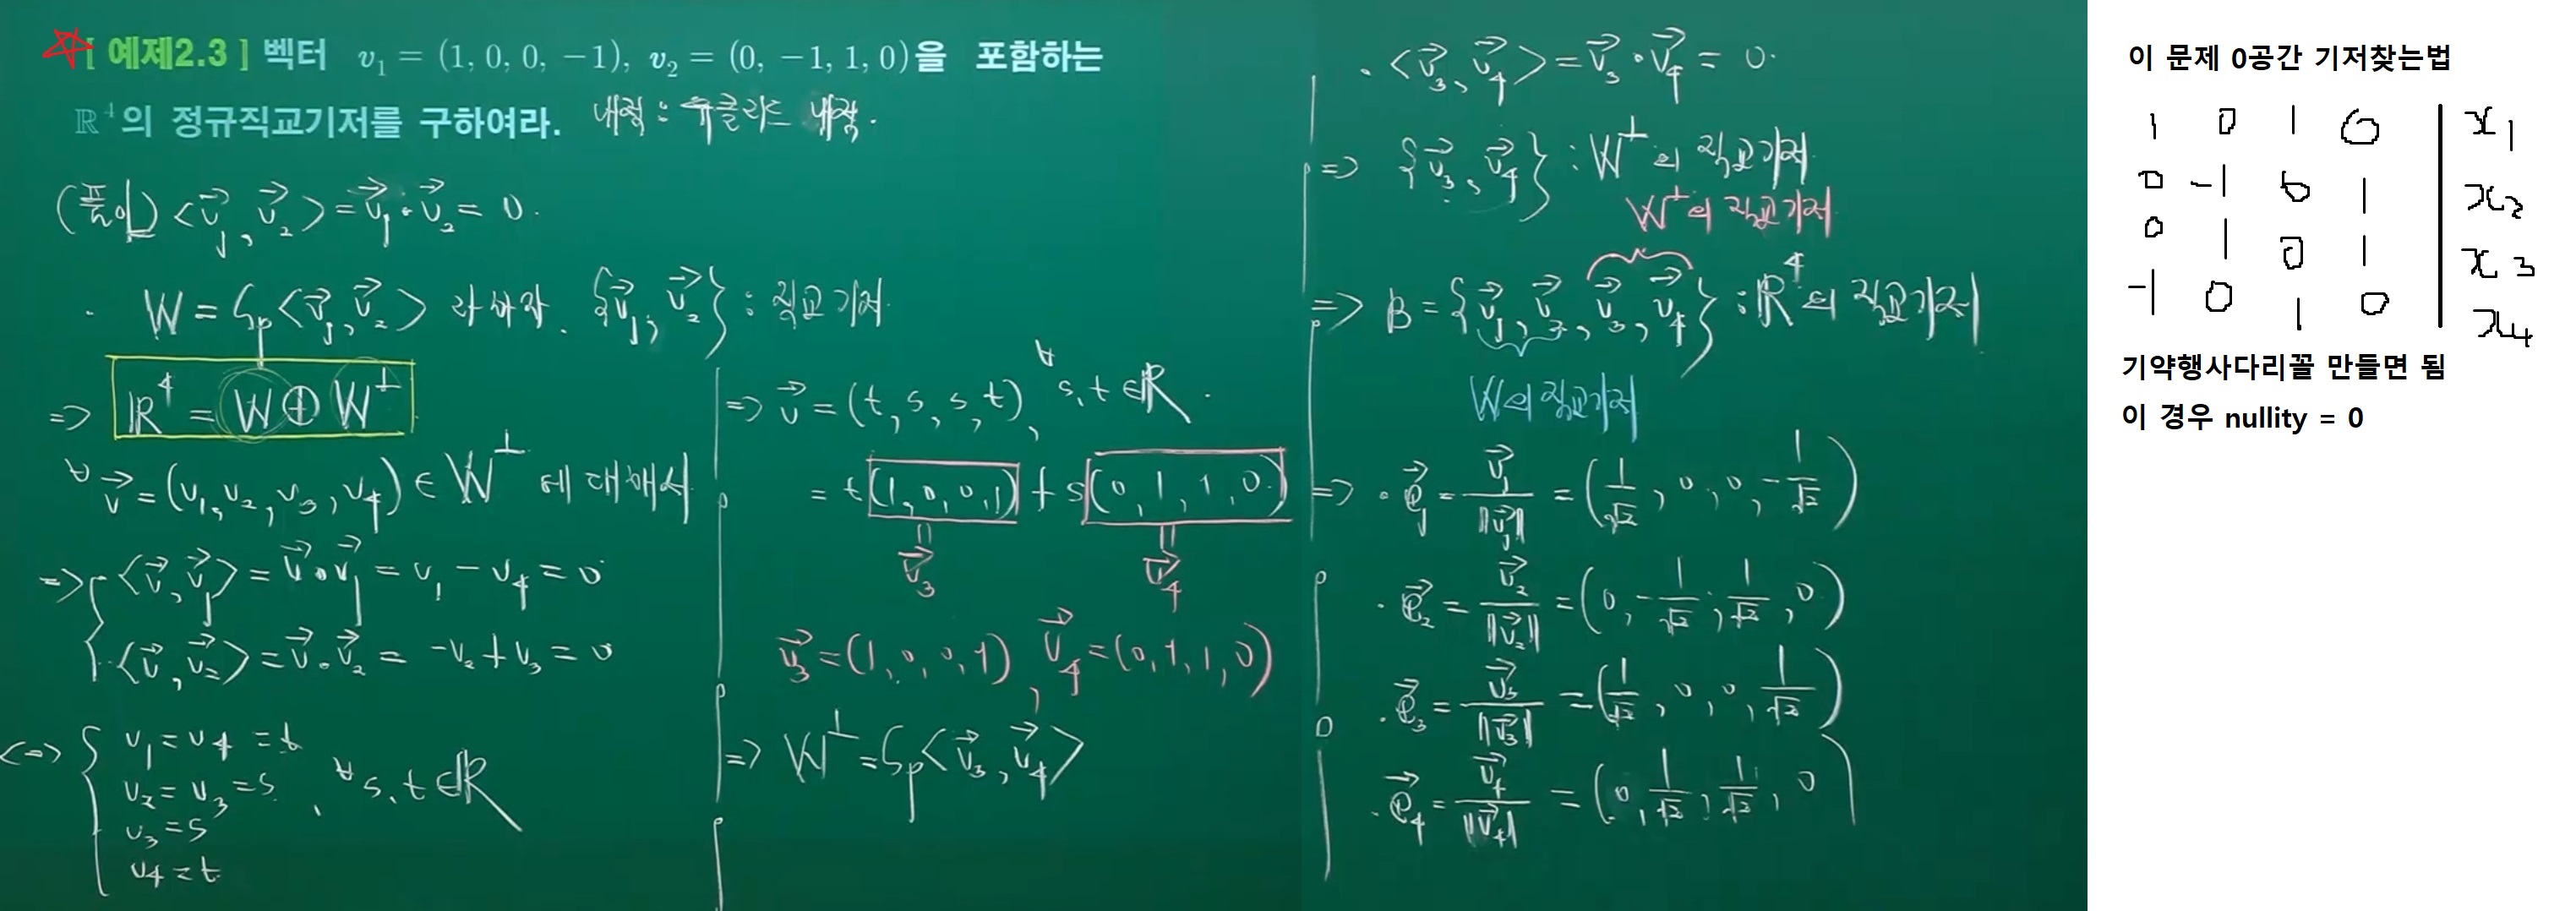 [ 예제2.3 ] 벡터 v₁ = (1, 0, 0, −1), v₂ = (0, −1, 1, 0)을 포함하는
ℝ⁴의 정규직교기저를 구하여라. 내적 : 유클리드 내적.
(풀이) <v⃗₁, v⃗₂> = v⃗₁·v⃗₂ = 0.
· W = Sp<v⃗₁, v⃗₂> 라 하자. {v⃗₁, v⃗₂} : 직교기저
=> ℝ⁴ = W ⊕ W^⊥
∀v⃗ = (v₁, v₂, v₃, v₄) ∈ W^⊥ 에 대해서
=> <v⃗, v⃗₁> = v⃗·v⃗₁ = v₁ − v₄ = 0
<v⃗, v⃗₂> = v⃗·v⃗₂ = −v₂ + v₃ = 0
<=> v₁ = v₄ = t
v₂ = v₃ = s , ∀s, t ∈ ℝ
v₃ = s
v₄ = t
=> v⃗ = (t, s, s, t), ∀s, t ∈ ℝ.
= t(1, 0, 0, 1) + s(0, 1, 1, 0)
|| ||
v⃗₃ v⃗₄
v⃗₃ = (1, 0, 0, 1), v⃗₄ = (0, 1, 1, 0)
=> W^⊥ = Sp<v⃗₃, v⃗₄>
· <v⃗₃, v⃗₄> = v⃗₃·v⃗₄ = 0.
=> {v⃗₃, v⃗₄} : W^⊥의 직교기저
W^⊥의 직교기저
=> B = {v⃗₁, v⃗₂, v⃗₃, v⃗₄} : ℝ⁴의 직교기저
W의 직교기저
=> · e⃗₁ = v⃗₁/||v⃗₁|| = (1/√2, 0, 0, −1/√2)
· e⃗₂ = v⃗₂/||v⃗₂|| = (0, −1/√2, 1/√2, 0)
· e⃗₃ = v⃗₃/||v⃗₃|| = (1/√2, 0, 0, 1/√2)
· e⃗₄ = v⃗₄/||v⃗₄|| = (0, 1/√2, 1/√2, 0)
이 문제 0공간 기저찾는법
1 0 1 0 | x₁
0 -1 0 1 | x₂
0 1 0 1 | x₃
-1 0 1 0 | x₄
기약행사다리꼴 만들면 됨
이 경우 nullity = 0